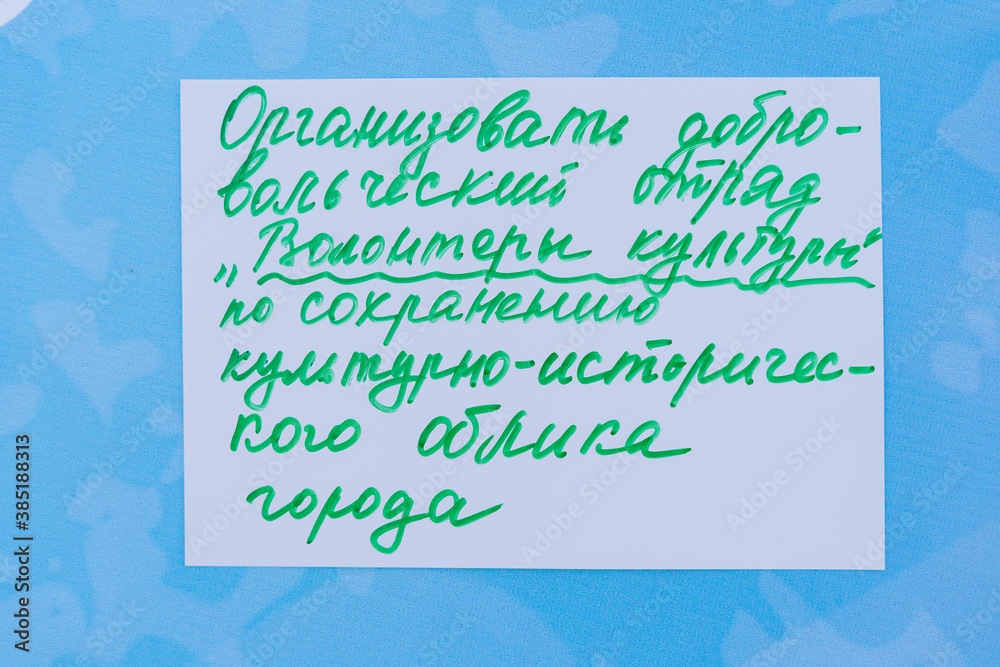 Организовать добро-
вольческий отряд
„Волонтеры культуры“
по сохранению
культурно-историчес-
кого облика
города
Adobe Stock | #385188313